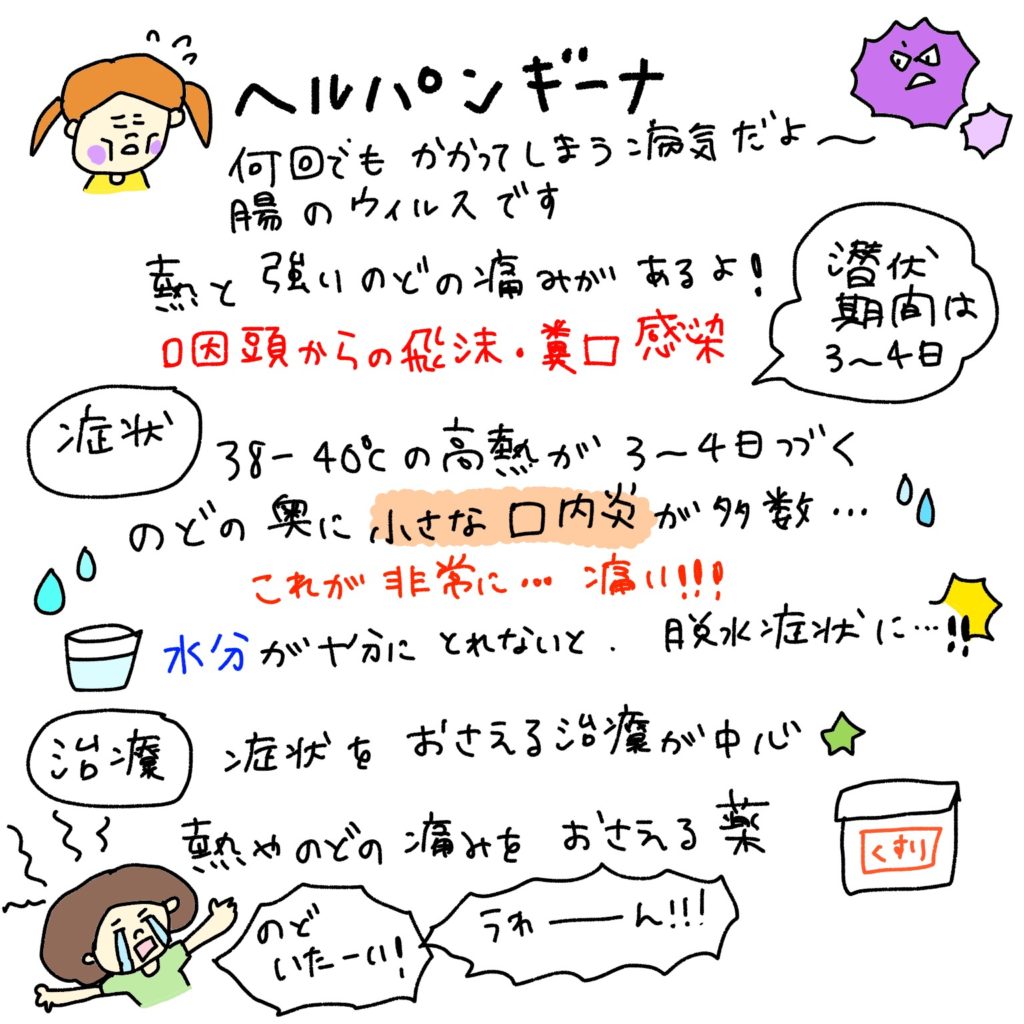 ヘルパンギーナ
何回でもかかってしまう病気だよ〜
腸のウィルスです
熱と強いのどの痛みがあるよ!
潜伏
期間は
3〜4日
口因頭からの飛沫・糞口感染
症状
38-40℃の高熱が3〜4日つづく
のどの奥に小さな口内炎が多数…
これが非常に…痛い!!!
水分が十分にとれないと.脱水症状に…!!
治療
症状をおさえる治療が中心
熱やのどの痛みをおさえる薬
くすり
のど
いたーい!
うわーーん!!!